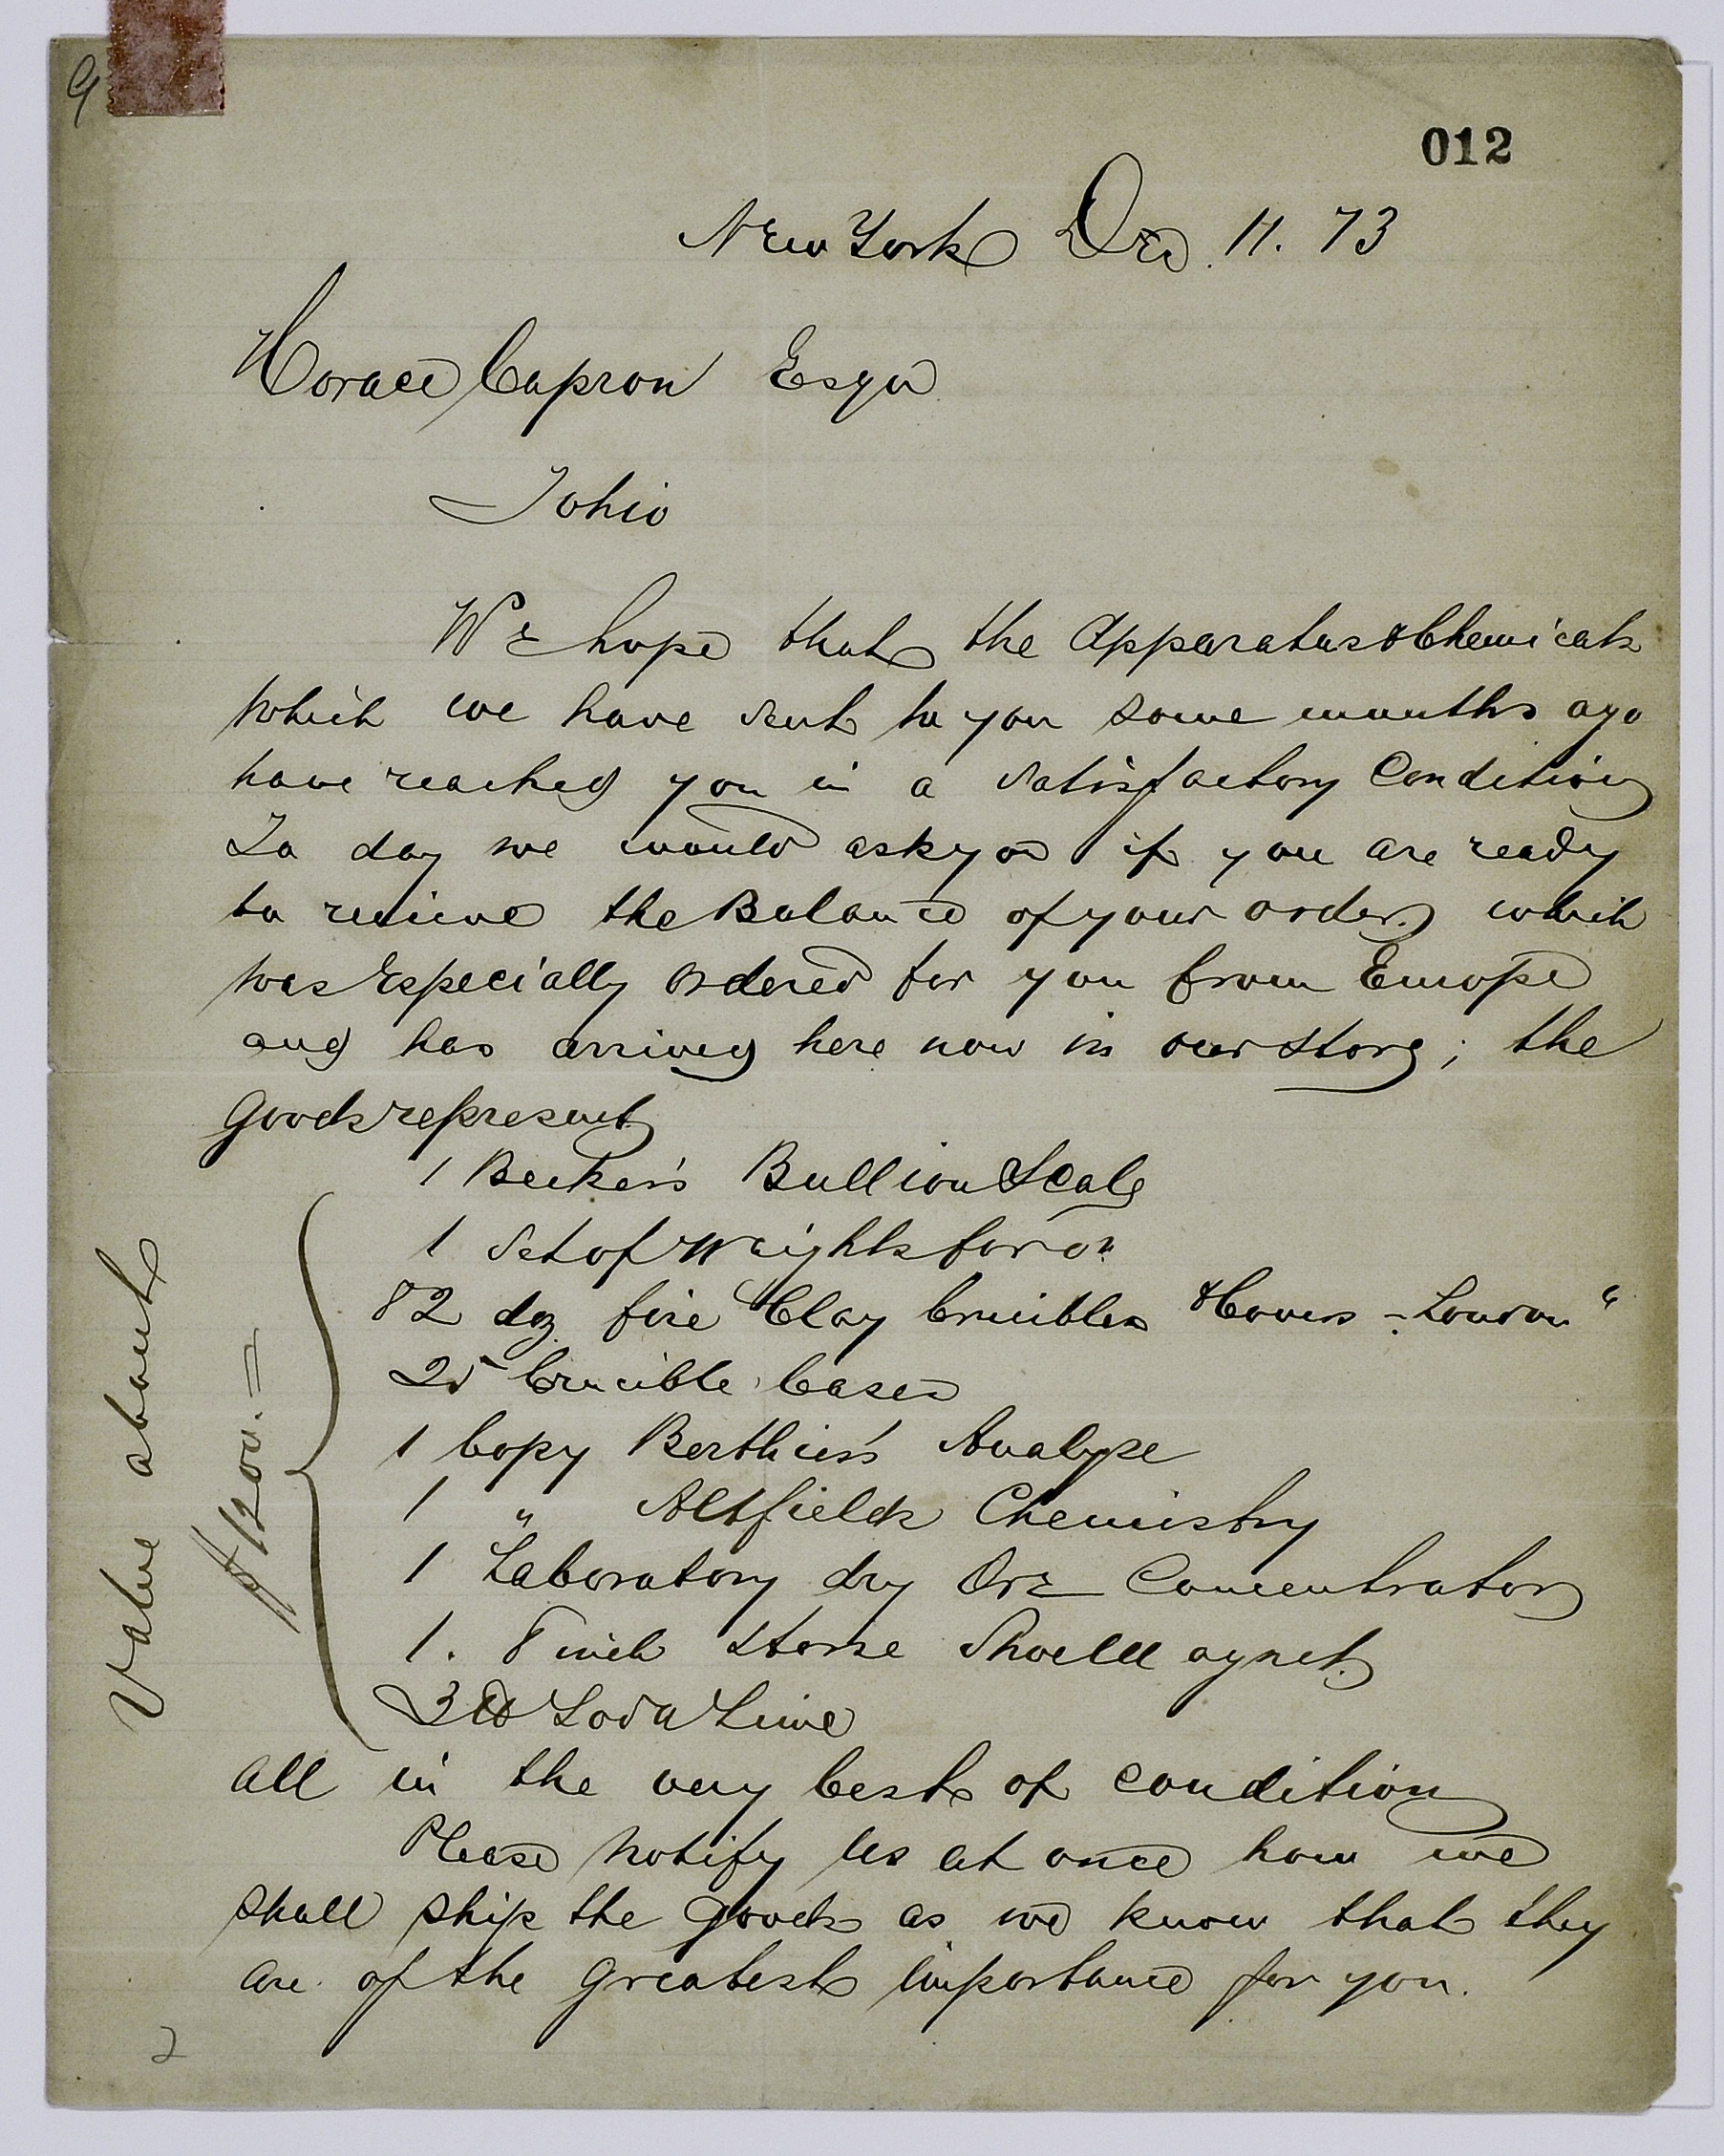 9
012
New York Dec. 11. 73
Horace Capron Esqr
Tohio
We hope that the Apparatus & Chemicals
which we have sent to you some months ago
have reached you in a satisfactory Condition
To day we would ask you if you are ready
to recieve the Balance of your order, which
was Especially ordered for you from Europe
and has arrived here now in our store; the
Goods represent
1 Becker's Bullion Scale
1 Set of Weights for do
82 dz fire Clay Crucibles & Covers - London "
25 Crucible Cases
1 Copy Berthier's Analyse
1 " Attfields Chemistry
1 Laboratory dry Ore Concentrator
1. 8 inch Horse Shoe Magnet
3 lb Soda Lime
Value about
$1200.=
all in the very best of condition
Please notify us at once how we
shall ship the goods as we know that they
are of the greatest importance for you.
2